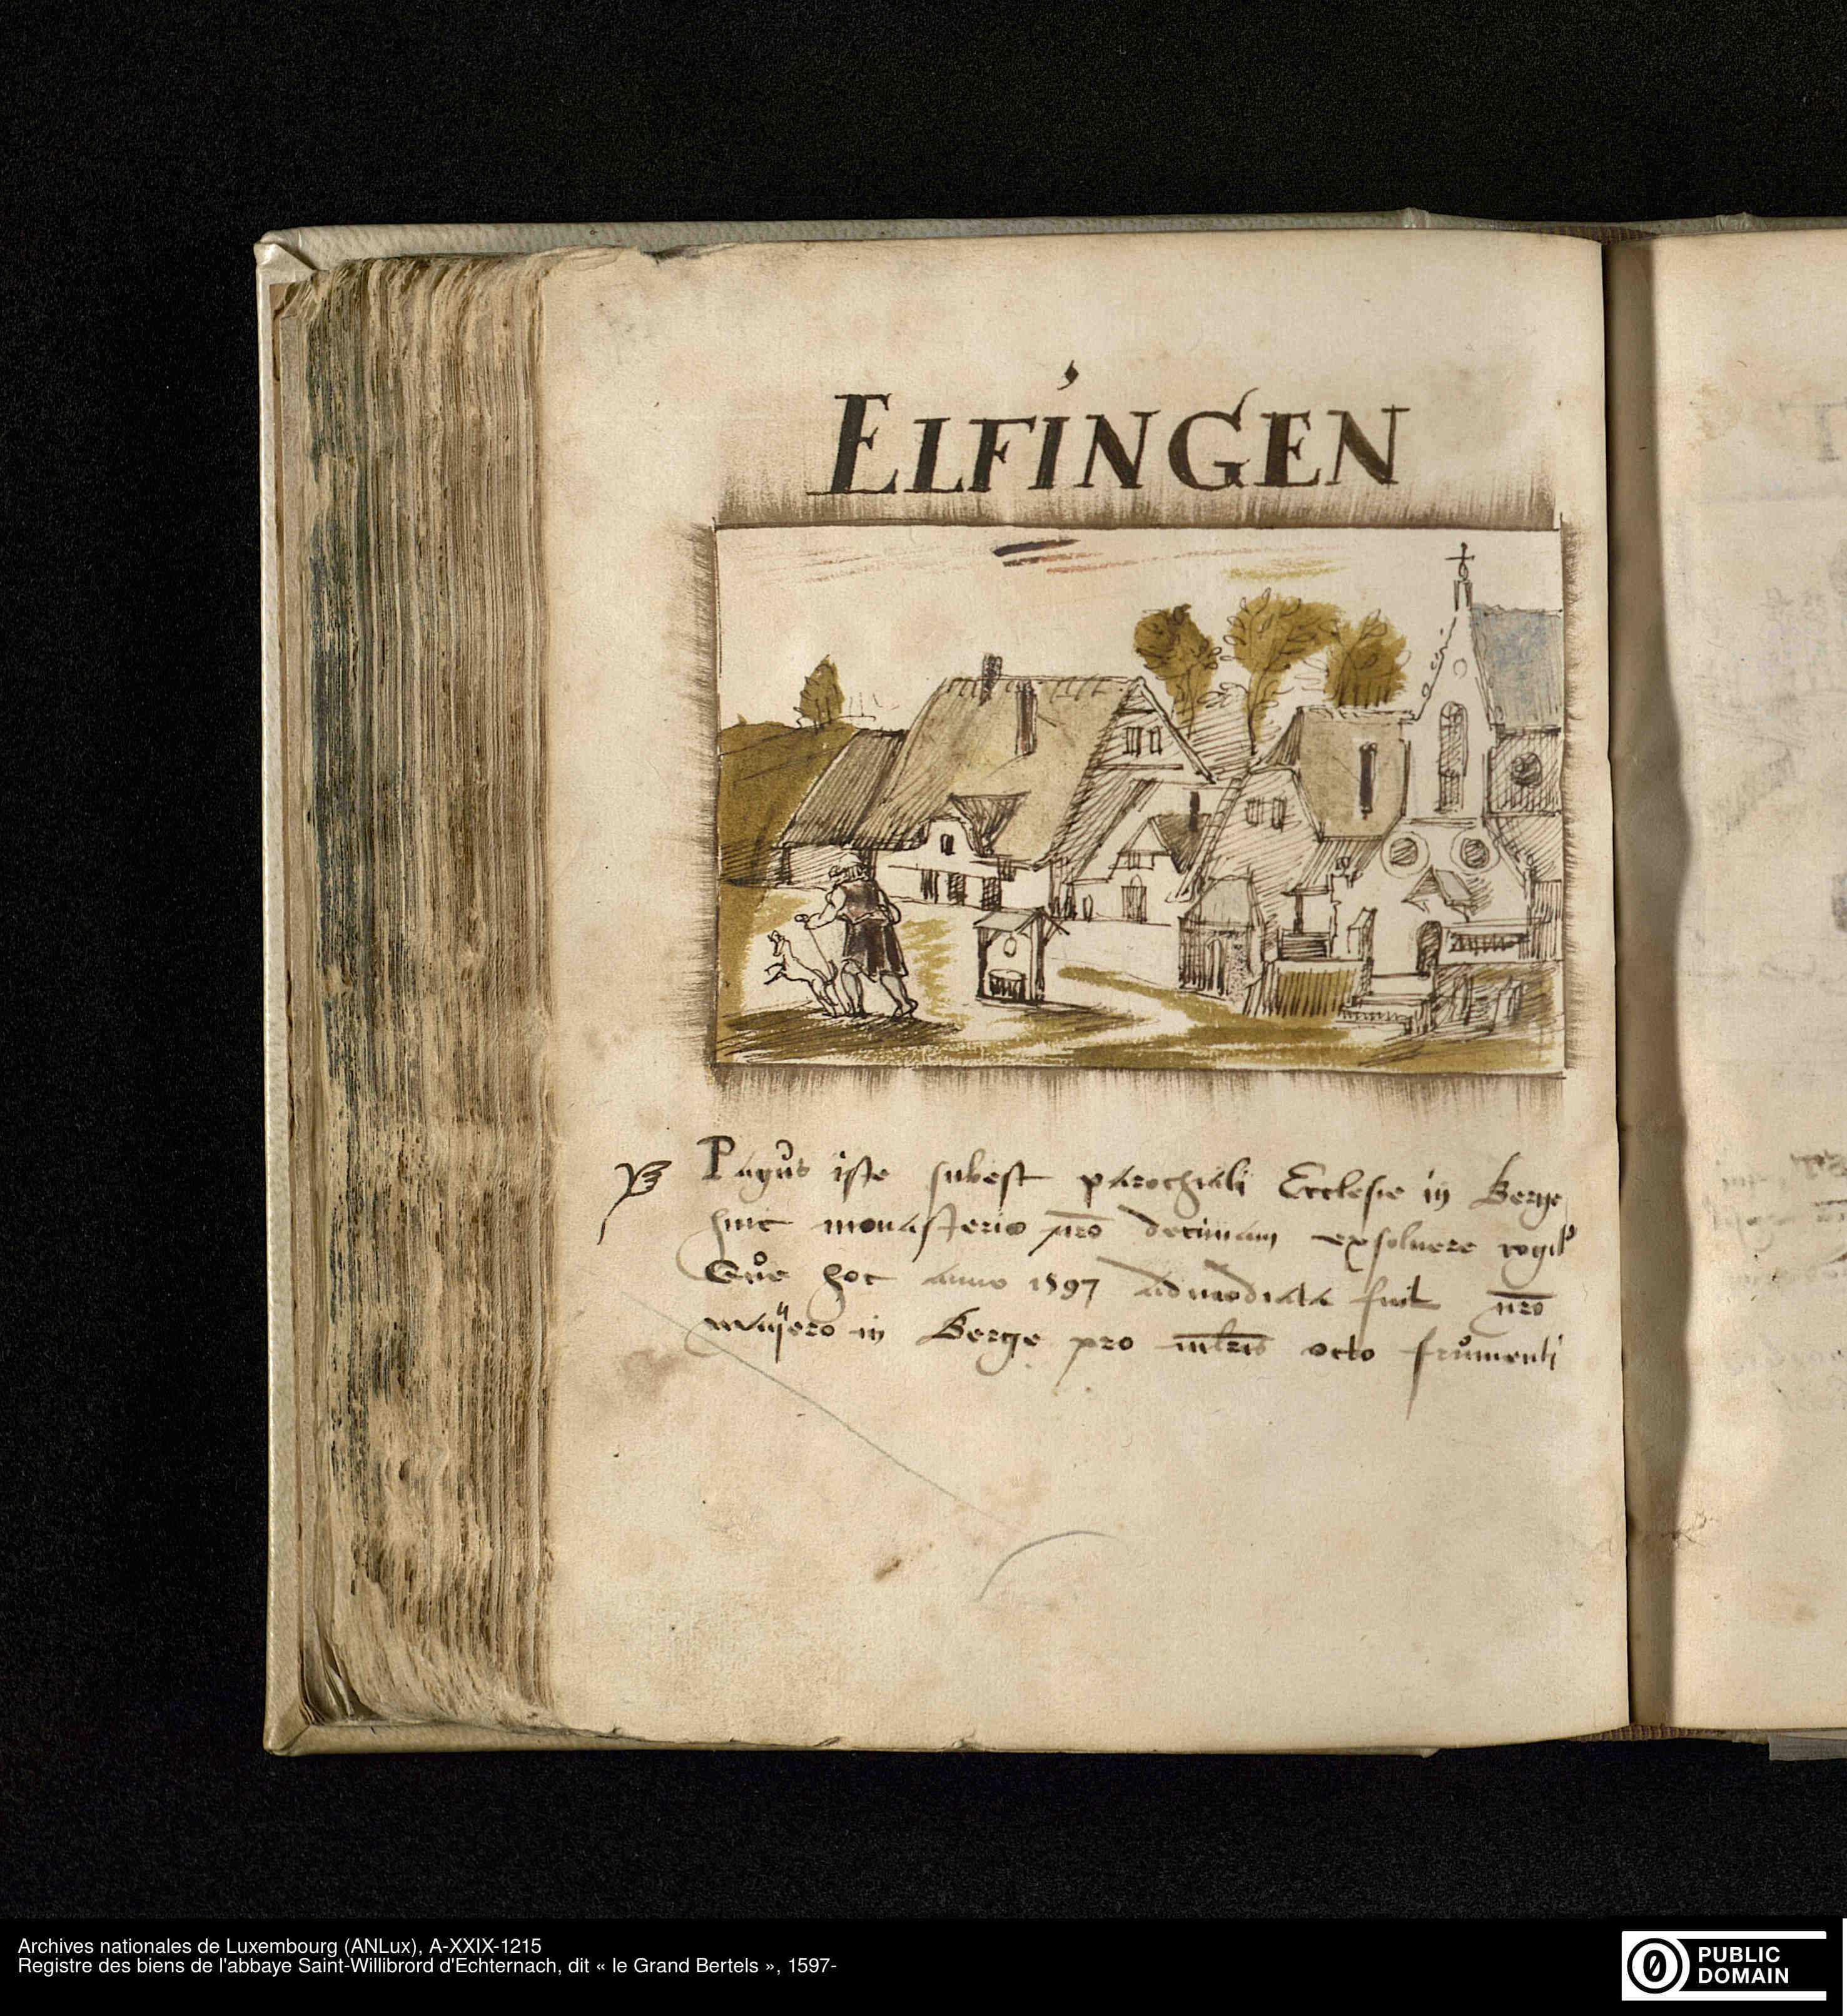 ELFINGEN
Pagus iste subest parochiali Ecclesie in Berge
huic monasterio nrō decimam exsoluere cogitʳ
Que hoc anno 1597 admodiata fuit nrō
maijero in Berge pro mlris octo frumenti
Archives nationales de Luxembourg (ANLux), A-XXIX-1215
Registre des biens de l'abbaye Saint-Willibrord d'Echternach, dit « le Grand Bertels », 1597-
PUBLIC
DOMAIN